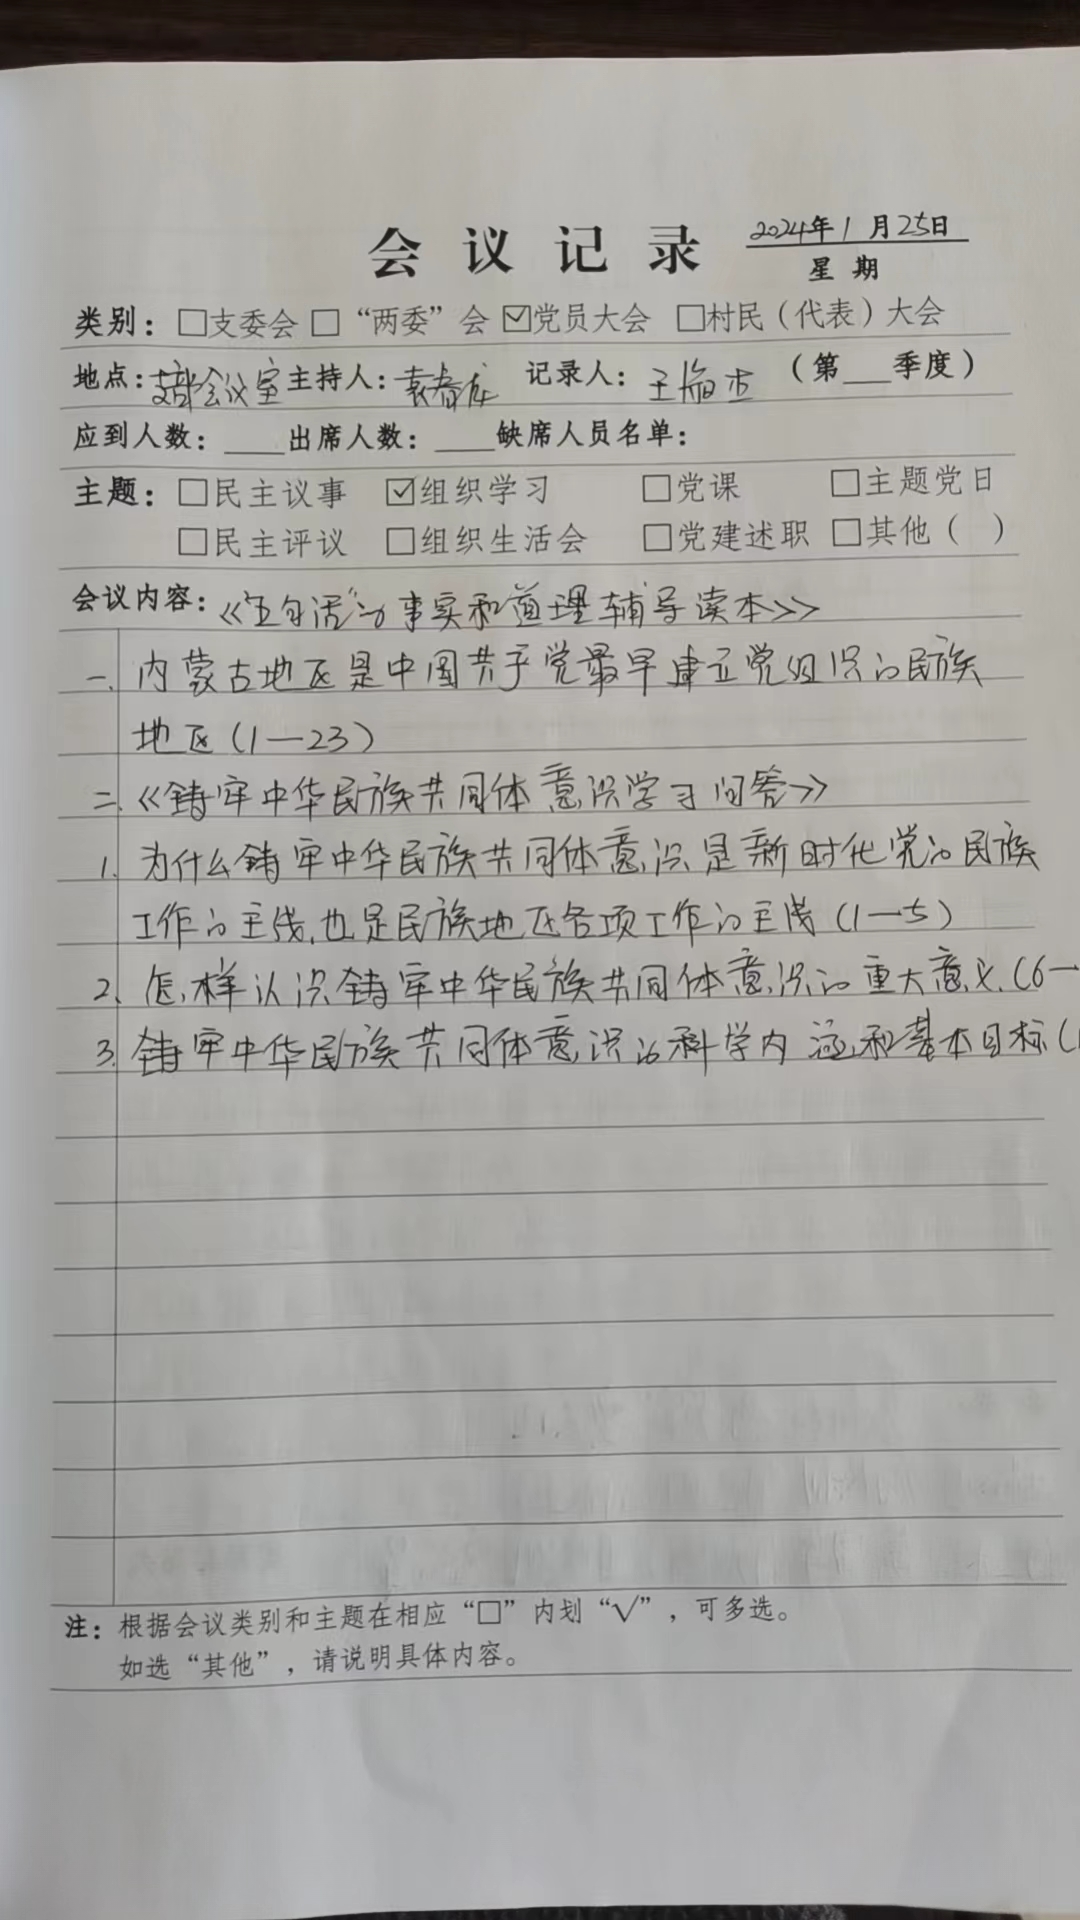 会议记录 2024年1月25日
星期
类别：□支委会 □“两委”会 ☑党员大会 □村民（代表）大会
地点：支部会议室 主持人：袁春龙 记录人：王 杰 （第___季度）
应到人数：____出席人数：____缺席人员名单：
主题：□民主议事 ☑组织学习 □党课 □主题党日
□民主评议 □组织生活会 □党建述职 □其他（ ）
会议内容：《“五句话”的事实和道理辅导读本》
一、内蒙古地区是中国共产党最早建立党组织的民族
地区(1—23)
二、《铸牢中华民族共同体意识学习问答》
1、为什么铸牢中华民族共同体意识是新时代党的民族
工作的主线,也是民族地区各项工作的主线(1—5)
2、怎样认识铸牢中华民族共同体意识的重大意义.(6—
3、铸牢中华民族共同体意识的科学内涵和基本目标(1
注：根据会议类别和主题在相应“□”内划“√”，可多选。
如选“其他”，请说明具体内容。